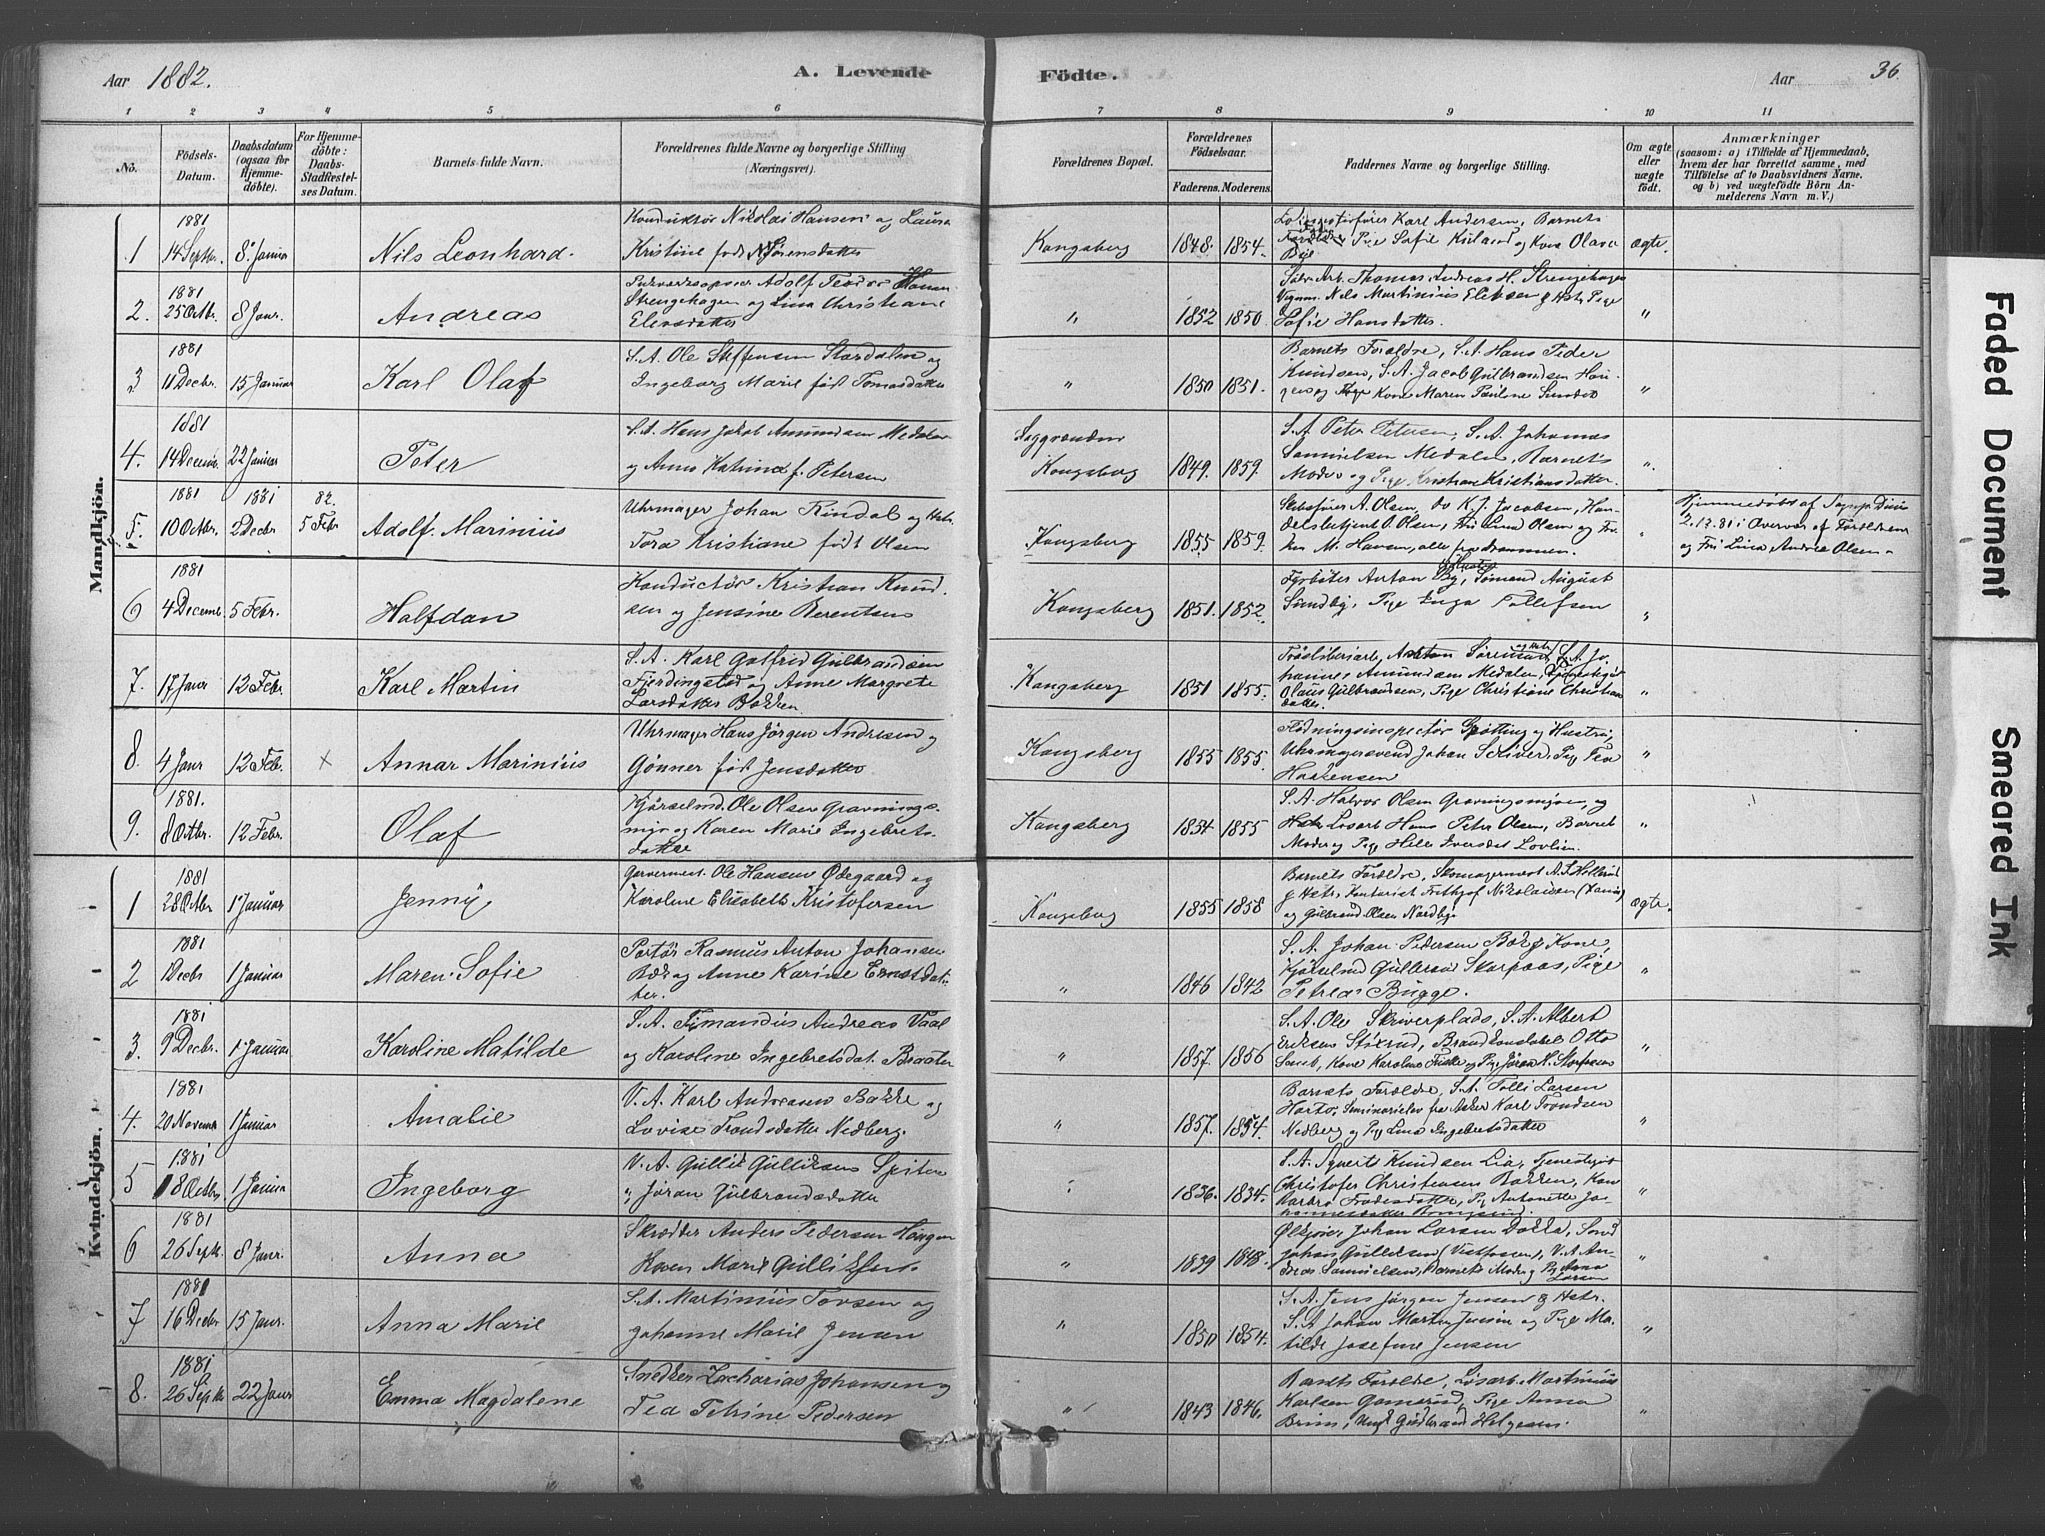 Aar 1882.
A. Levende
Födte.
Aar
36.
1 2 3 4 5 6 7 8 9 10 11
No.
Födsels-Datum.
Daabsdatum (ogsaa for hjemme-döbte).
For Hjemme-döbte: Daabs-Stadfæstel-ses Datum.
Barnets fulde Navn.
Forældrenes fulde Navne og borgerlige Stilling (Næringsvei).
Forældrenes Bopæl.
Forældrenes Födselsaar.
Faderens. Moderens.
Faddernes Navne og borgerlige Stilling.
Om ægte eller uægte født.
Anmærkninger
(saasom: a) i Tilfælde af Hjemmedaab,
hvem der har forrettet samme, med
Tilföielse af to Daabsvidners Navne.
og b) ved uægtefödte Börn An-
melderens Navn m. V.)
Mandkjön.
1881
1 14 Septbr. 8. Januar Nils Leonhard.
Konduktör Nikolai Hansen og Laura
Kristine født Sørensdatter
Kongsberg 1848. 1854.
Karl Andersen, Barnets
Forældre, Pige Sofie og Kone Olava
ægte.
1881
2. 25 Octbr. 8 Janr. Andreas
Adolf Teodor Hansen
Strengehagen og Lina Christiane
Elensdatter
" 1852 1850.
Sølv. Arb. Thomas Andreas H. Strengehagen
Nils Martinius Eliesen & Hstr. Pige
Sofie Hansdatter.
"
1881
3 11 Decbr. 15 Januar Karl Olaf
S. A. Ole Steffensen Stordalen og
Ingeborg Marie født Tomasdatter
" 1850 1851.
Barnets Forældre, S. A. Hans Peder
Knudsen, S. A. Jacob Gulbrandsen Hau-
gen og Kone Maren Pauline
"
1881
4. 14 Decembr. 22 Januar Peter
S. A. Hans Jakob Amundsen Medalen
og Anna Katrina f. Petersen
Saggrenden
Kongsberg 1849. 1859.
S. A. Peter Petersen, S. A. Johannes
Samuelsen Medalen, Barnets
Moder og Pige Kristiane Kristiansdatter.
".
1881 1881 82.
5. 10 Octbr. 2 Decbr 5 Febr Adolf Marinius
Uhrmager Johan Rindal og Hstr.
Tora Kristiane født Olsen
Kongsberg 1855 1859.
Skibsfører A. Olsen, do K. J. Jacobsen, Han-
delsbetjent O. Olsen, Frk. Lina Olsen og Frø-
ken M. Hansen, alle fra Drammen.
"
Hjemmedøbt af
2.12.81 i Overvær af Forældrene
og Frk. Lina Andrea Olsen.
1881
6 4 Decembr. 5 Febr. Halfdan
Konductör Kristian Knud-
sen og Jensine Berentsen
Kongsberg 1851. 1852.
Fyrbøter Anton By, Sømand August
Sundby, Pige Inga Tollefsen
"
7. 17 Janr 12 Febr. Karl Martin
S. A. Karl Gotfrid Gulbrandsen
Fjerdingstad og Anne Margrete
Larsdatter Bakken.
Kongsberg 1851 1855.
Anton Sørensen og Hstr., S. A. Jo-
hannes Amundsen Medalen,
Olaus Gulbrandsen, Pige Christiane Christians-
datter.
"
8. 4 Janr 12 Febr. × Annar Marinius
Uhrmager Hans Jörgen Andresen og
Gønner født Jensdatter
Kongsberg 1855 1855.
Flødningsinspektør Grötting og Hustru,
Uhrmagersvend Johan Scriver, Pige Tea
Haakensen
"
1881.
9. 8 Octbr. 12 Febr. Olaf
Kjørselmd. Ole Olsen Gravnings-
myr og Karen Marie Ingebrets-
datter
Kongsberg 1834 1855
S. A. Halvor Olsen Gravningsmyren, og
Hstr. Løsarb. Hans Peter Olsen, Barnets
Moder og Pige Helle Iversdat. Lovlien.
"
Kvindekjön.
1881
1 28 Octbr 1 Januar Jenny
Garvermest. Ole Hansen Ødegaard og
Karoline Elisabeth Kristofersen
Kongsberg 1855 1858
Barnets Forældre, Skomagermest.
& Hstr. Kontorist Frithjof Nikolaisen
og Gulbrand Olsen Nordby.
ægte.
1881
2 1 Decbr 1 Januar Maren Sofie
Portör Rasmus Anton Johansen
Bak og Anne Karine Ernstdat-
ter.
" 1846 1842
S. A. Johan Pedersen Bak & Kone,
Kjørselmd Gulbrand Skarpaas, Pige
Petrea Bugge.
"
1881
3. 9 Decbr. 1 Januar Karoline Matilde
S. A. Timandus Andreas Vaal
og Karoline Ingebretsdat. Braaten
" 1857. 1856
S. A. Ole Skriverplads, S. A. Albert
Eriksen Stixrud, Brandkonstabel Otto
Kone Karoline og Pige Jøran
"
1881
4. 20 Novemb 1 Januar Amalie
V. A. Karl Andreasen Bakke og
Lovise Trondsdatter Nedberg.
" 1857. 1854.
Barnets Forældre, S. A. Tolli Larsen
Seminarielev fra Asker Karl Trondsen
Nedberg og Pige Lina Ingebretsdatter
"
1881
5 8 Octbr 1 Janua Ingeborg
V. A. Gullik Gulliksen Spiten
" Jøran Gulbrandsdatter
" 1836. 1834.
S. A. Syvert Knudsen Lia, Tjenestegut
Christofer Christiansen Bakken, Kone
Barbro, Pige Antonette Jo-
hannesdatter
"
1881
6 26 Septr. 8 Janr. Anna
Skrædder Anders Pedersen Haugen
Karen Marie Gulliksen.
" 1839 1848.
Johan Larsen Dokka,
Johan Gulliksen (Vestfossen), V. A. An-
dreas Samuelsen, Barnets Moder og Pige Anna
Larsen
"
1881
7 16 Decbr 15 Janr. Anna Marie
S. A. Martinius Torsen og
Johanne Marie Jensen
" 1850 1854.
S. A. Jens Jørgen Jensen & Hstr.
S. A Johan Martin Jensen og Pige Ma-
tilde Josefine Jensen
"
1881
8. 26 Septbr 22 Janr Emma Magdalene
Snedker Zacharias Johansen og
Tea Petrine Pedersen
" 1843 1846.
Barnets Forældre, Løsarb. Martinius
Karlsen Gamsrud, Pige Anna
Brun, Ungk. Gulbrand Helgesen.
"
Faded Document
Smeared Ink